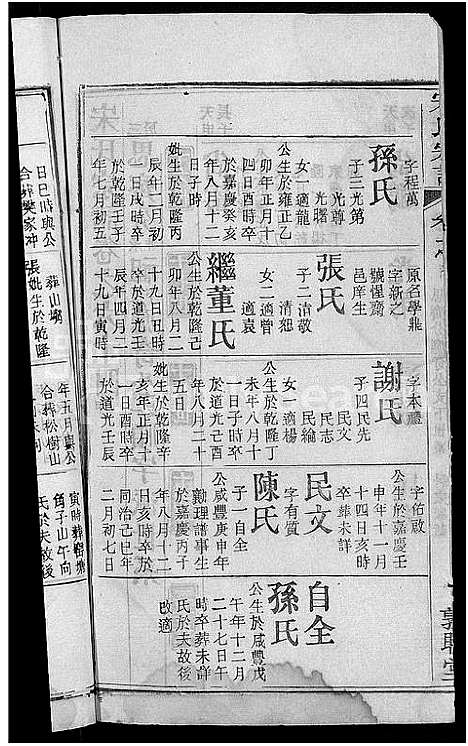 字程萬
孫氏
子二光第
光尊
光曙
女一適龍
公生於雍正乙
卯年正月十
四日酉時卒
於嘉慶癸亥
年八月十二
日子時
妣生於乾隆丙
辰年二月四
日戌時卒
於乾隆壬子
年七月初五
原名學鼎
字新之
號惺齋
邑庠生
張氏
子二清敬
清恕
女二適曾
適袁
繼董氏
公生於乾隆己
卯年八月二
十九日丑時
卒於道光壬
辰年四月二
十九日寅時
字本禮
謝氏
子四民先
民文
民志
民綸
女一適楊
公生於乾隆丁
未年八月十
一日子時卒
於道光己酉
年八月二十
五日
妣生於乾隆辛
亥年正月十
一日酉時卒
於道光壬辰
字佑啟
公生於嘉慶壬
申年十一月
十四日亥時
卒葬未詳
民文
字有質
陳氏
子一自全
公咸豐庚申年
勷理譜事生
於嘉慶丙子
年八月十二
日亥時卒於
同治己巳年
二月初七日
自全
公生於咸豐戊
午年十二月
二十七日午
時卒葬未詳
孫氏
氏於夫故後
改適
日巳時與公
合葬樊家冲
葬山塲
張妣生於乾隆
年五月與公
合葬松樹山
寅時葬
角子山午向
氏於夫故後